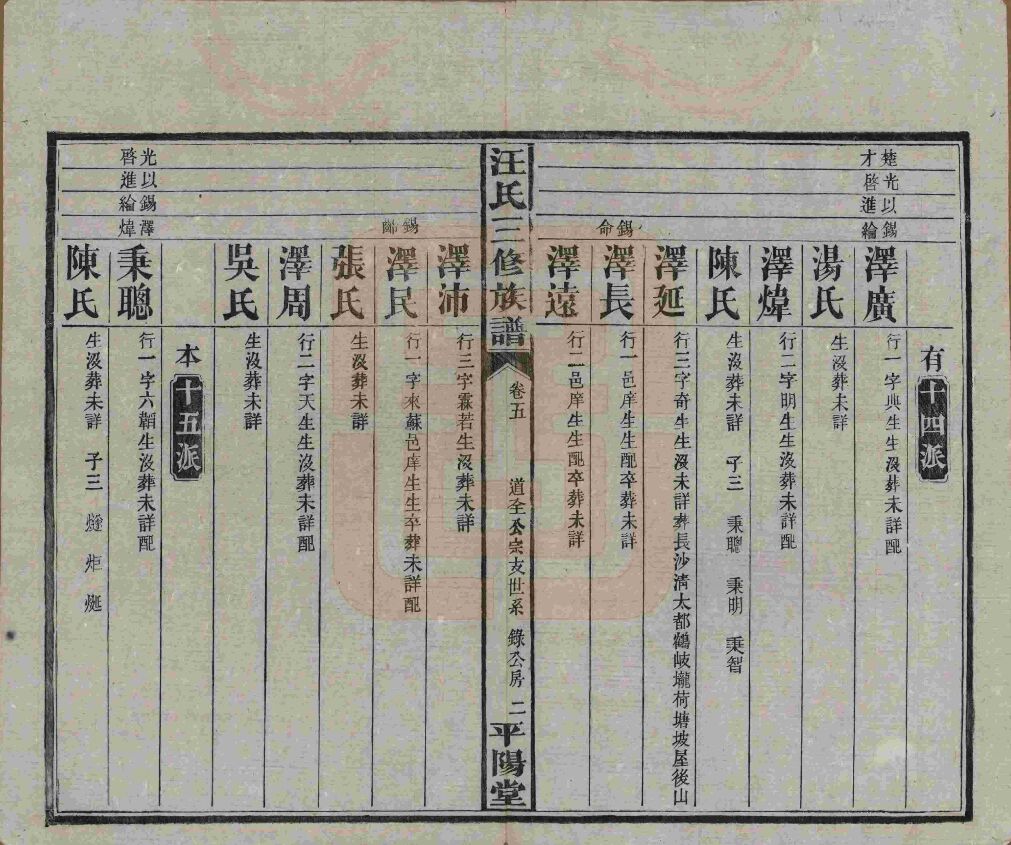 有十四派
楚光以錫
才啓進綸
澤廣 行一字典生生沒葬未詳配
湯氏 生沒葬未詳
澤煒 行二字明生生沒葬未詳配
陳氏 生沒葬未詳 子三 秉聰 秉明 秉智
澤延 行三字奇生生沒未詳葬長沙清太都鶴岐壠荷塘坡屋後山
錫命
澤長 行一邑庠生生配卒葬未詳
澤遠 行二邑庠生生配卒葬未詳
汪氏三修族譜 卷五 道全公宗支世系 錄公房 二 平陽堂
澤沛 行三字霖若生沒葬未詳
錫
澤民 行一字來蘇邑庠生生卒葬未詳配
張氏 生沒葬未詳
澤周 行二字天生生沒葬未詳配
吳氏 生沒葬未詳
本十五派
光以錫澤
啓進綸煒
秉聰 行一字六韜生沒葬未詳配
陳氏 生沒葬未詳 子三 熢 炬 烻